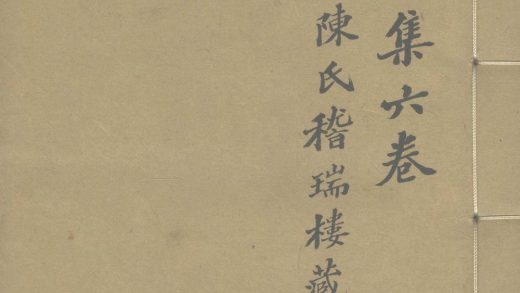 集六卷
陳氏稽瑞楼藏